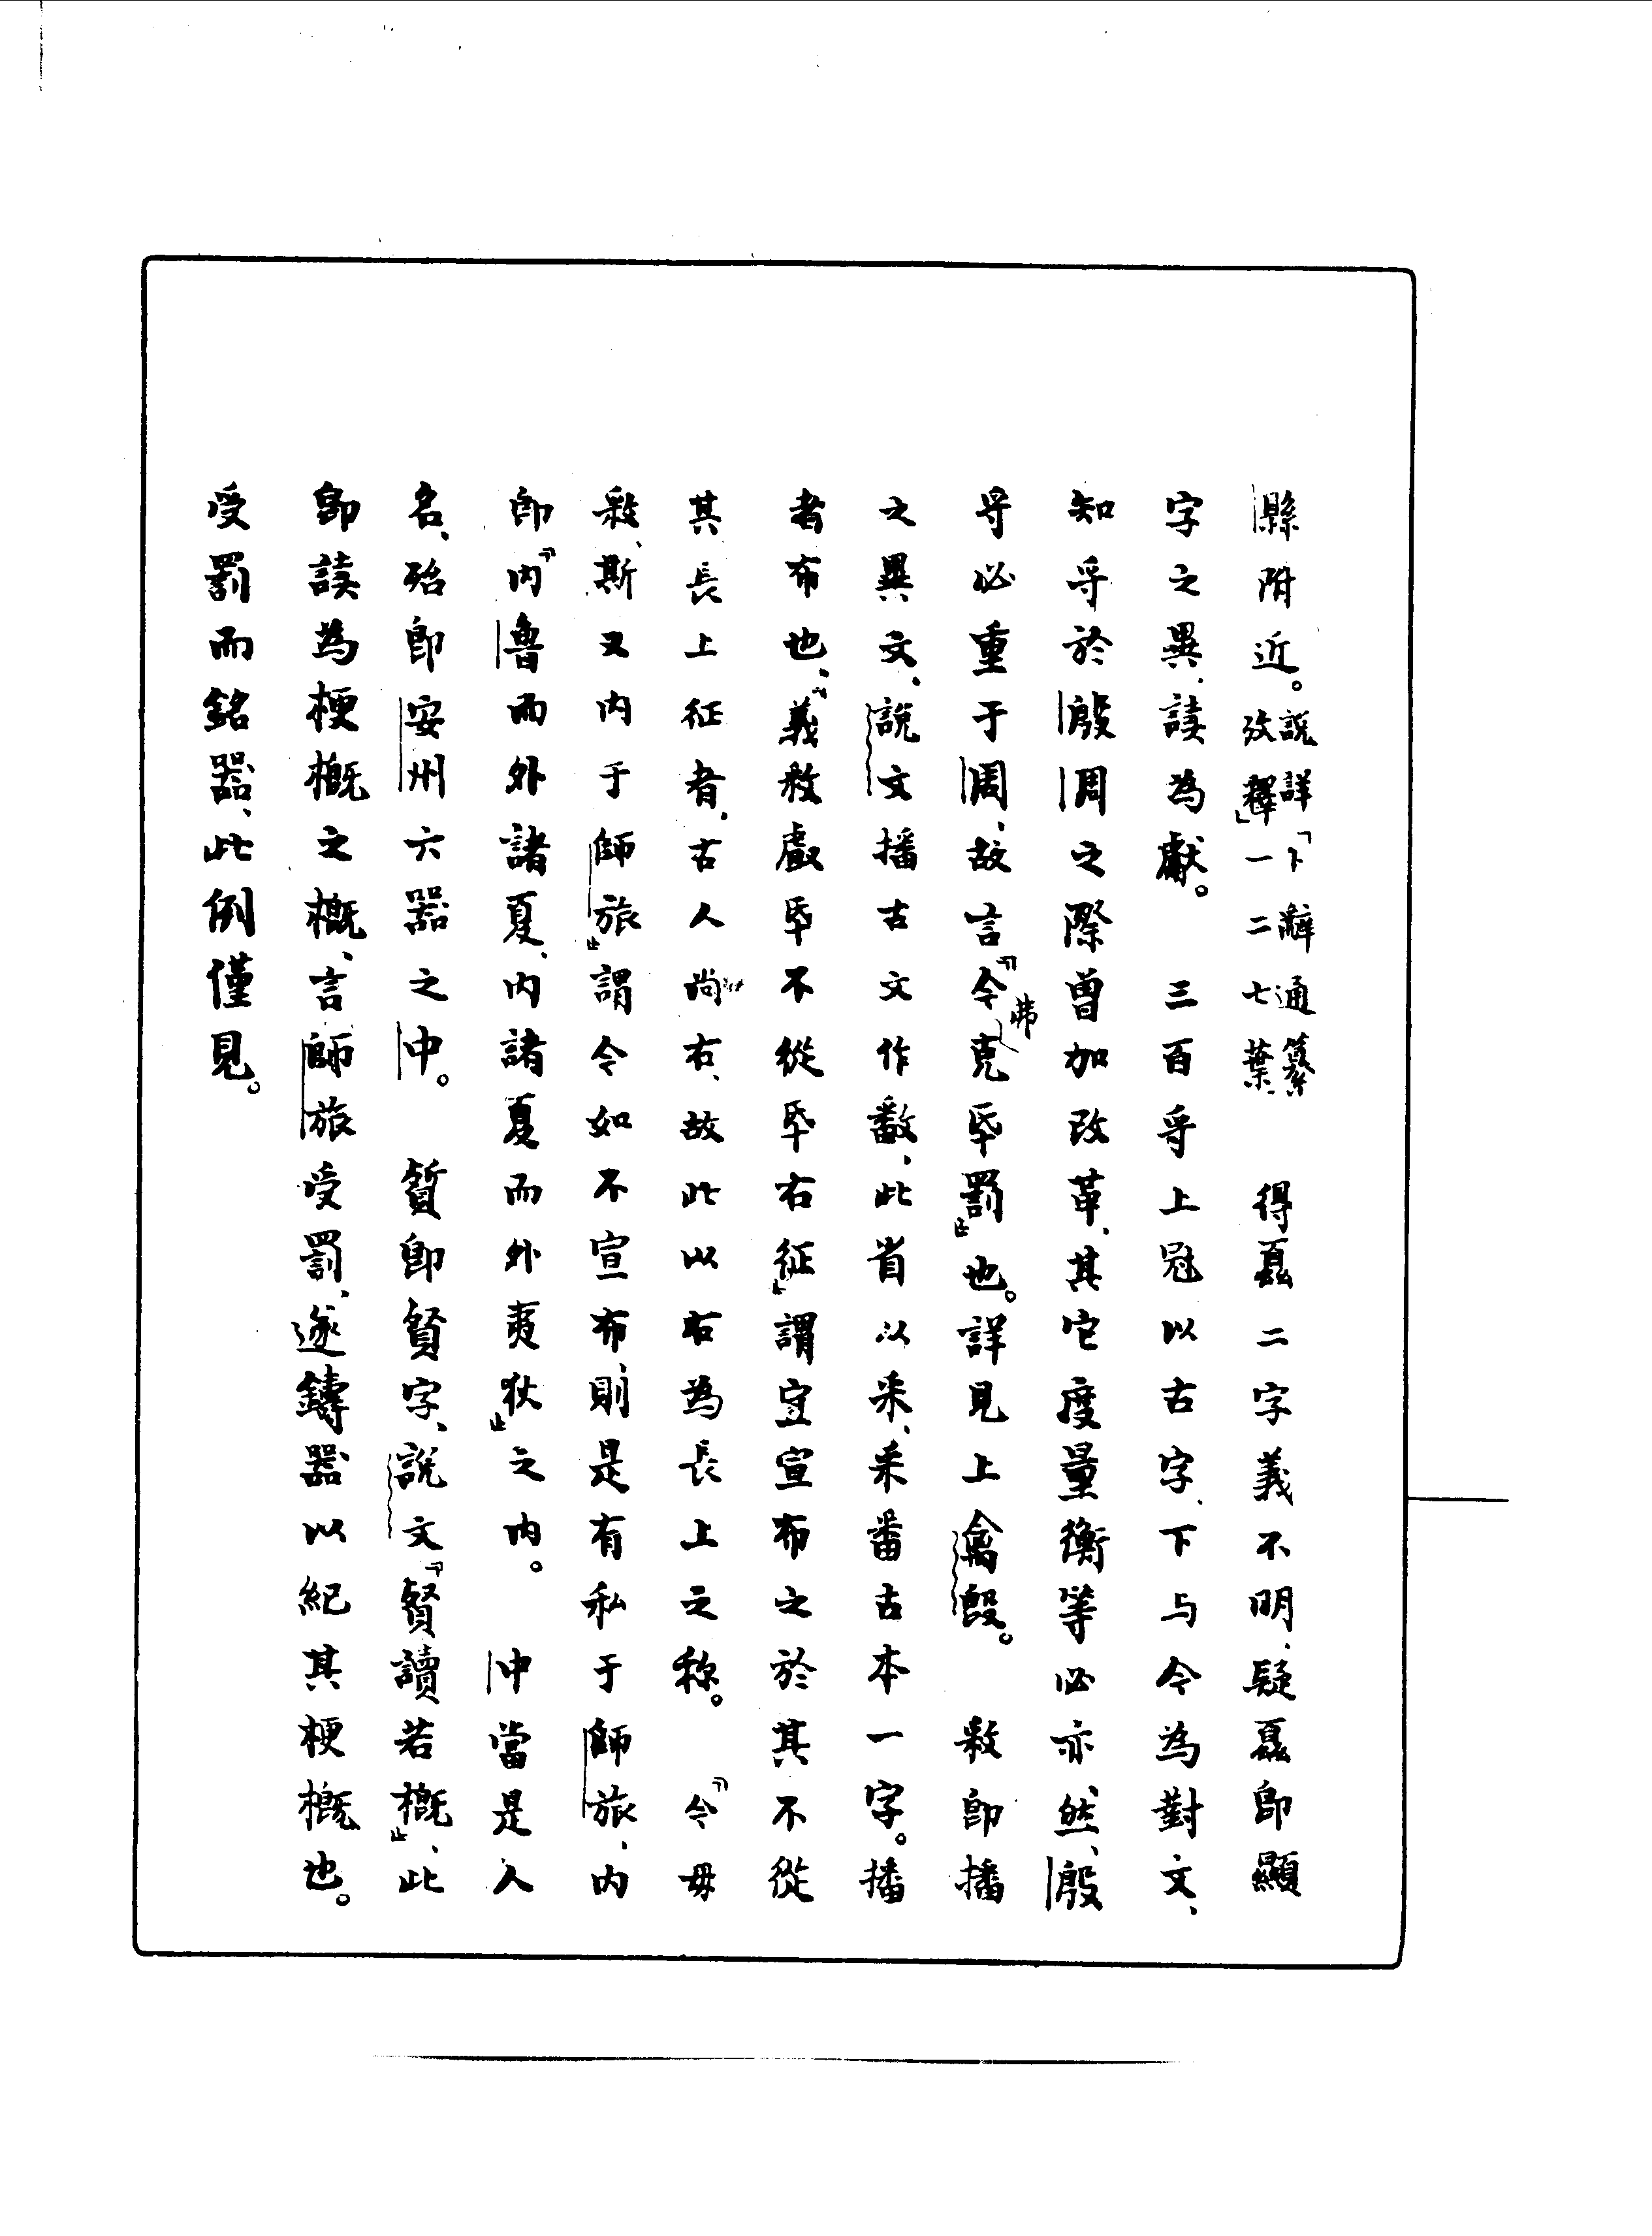 縣附近。說詳「卜辭通纂攷釋」一二七葉 得䖒二字義不明、疑䖒即顯
字之異、讀為獻。 三百寽上冠以古字、下与今為對文、
知寽於殷周之際曾加改革、其它度量衡等必亦然、殷
寽必重于周、故言「今弗克氒罰」也。詳見上禽𣪘。 𢿥即播
之異文、說文播古文作𢿥、此省以釆、釆番古本一字。播
者布也、「義𢿥𠭯氒不從氒右征」謂宜宣布之於其不從
其長上征者、古人尚右、故此以右為長上之稱。 「今毋
𢿥、斯又內于師旅」謂今如不宣布、則是有私于師旅、內
即「內魯而外諸夏、內諸夏而外夷狄」之內。 中當是人
名、殆即安州六器之中。 䝷即𧵩字、說文「𧵩讀若概」、此
即讀為梗概之概、言師旅受罰、遂鑄器以紀其梗概也。
受罰而銘器、此例僅見。